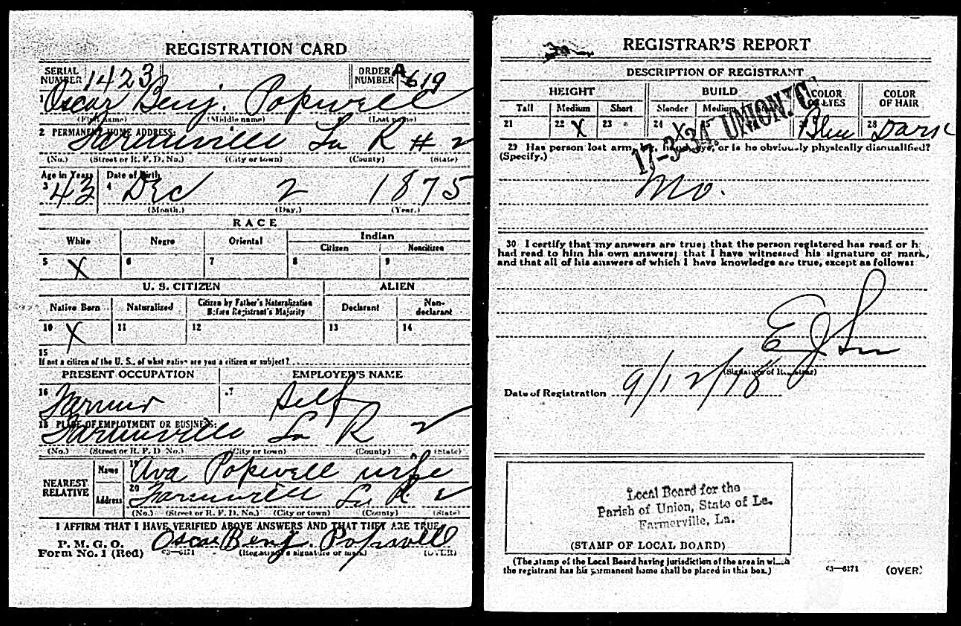 REGISTRATION CARD
SERIAL NUMBER 1423 ORDER NUMBER A 619
1 Oscar Benj. Popwell
(First name) (Middle name) (Last name)
2 PERMANENT HOME ADDRESS:
Farmerville La R # 2
(No.) (Street or R. F. D. No.) (City or town) (County) (State)
Age in Years Date of Birth
3 42 4 Dec 2 1875
(Month.) (Day.) (Year.)
RACE
White Negro Oriental Indian
Citizen Noncitizen
5 X 6 7 8 9
U. S. CITIZEN ALIEN
Native Born Naturalized Citizen by Father's Naturalization Before Registrant's Majority Declarant Non-declarant
10 X 11 12 13 14
15
If not a citizen of the U. S., of what nation are you a citizen or subject?
PRESENT OCCUPATION EMPLOYER'S NAME
16 Farmer 17 Self
18 PLACE OF EMPLOYMENT OR BUSINESS:
Farmerville La R 2
(No.) (Street or R. F. D. No.) (City or town) (County) (State)
NEAREST RELATIVE
Name 19 Ava Popwell wife
Address 20 Farmerville La R 2
(No.) (Street or R. F. D. No.) (City or town) (County) (State)
I AFFIRM THAT I HAVE VERIFIED ABOVE ANSWERS AND THAT THEY ARE TRUE
P. M. G. O.
Form No. 1 (Red) 03—6171 Oscar Benj. Popwell
(Registrant's signature or mark) (OVER)
REGISTRAR'S REPORT
DESCRIPTION OF REGISTRANT
HEIGHT BUILD COLOR OF EYES COLOR OF HAIR
Tall Medium Short Slender Medium
21 22 X 23 24 X 27 Blue 28 Dark
17-3-34. UNION.
29 Has person lost arm, leg, hand, eye, or is he obviously physically disqualified?
(Specify.)
No.
30 I certify that my answers are true; that the person registered has read or h
had read to him his own answers; that I have witnessed his signature or mark,
and that all of his answers of which I have knowledge are true, except as follows:
(Signature of Registrar)
Date of Registration 9/12/18
Local Board for the
Parish of Union, State of La.
Farmerville, La.
(STAMP OF LOCAL BOARD)
(The stamp of the Local Board having jurisdiction of the area in which
the registrant has his permanent home shall be placed in this box.)
03—6171 (OVER)